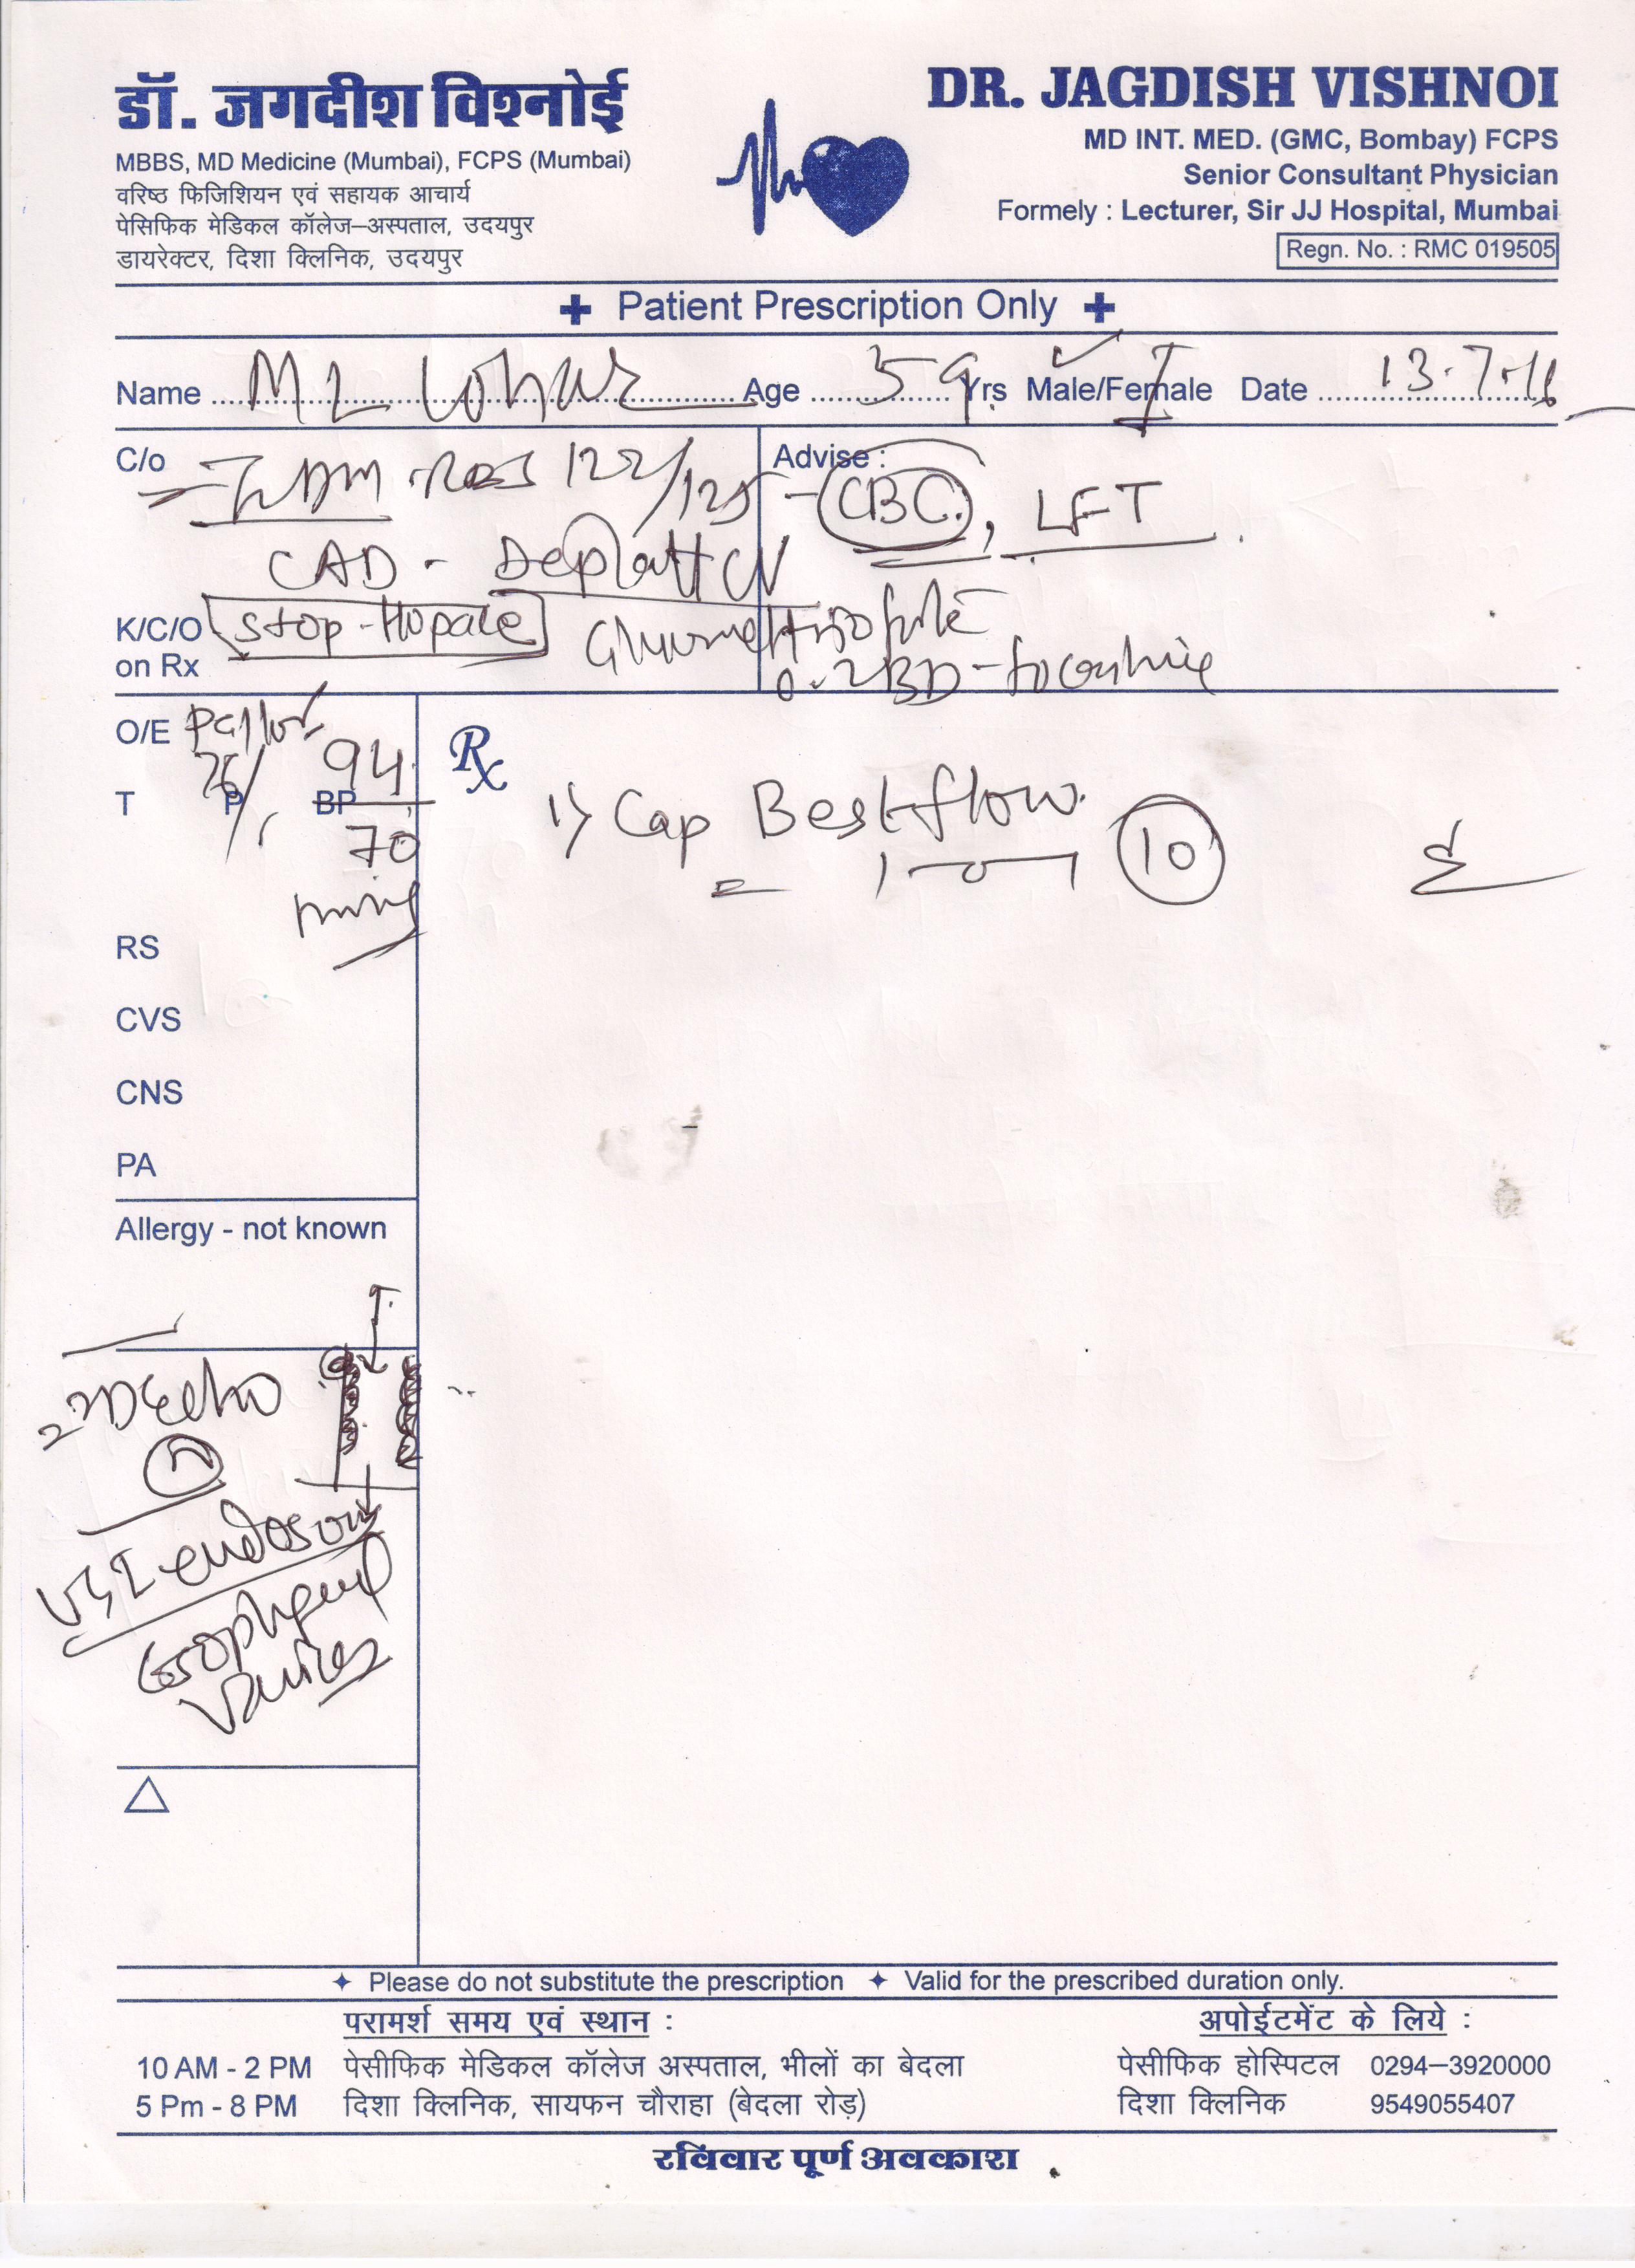 डॉ. जगदीश विश्नोई
MBBS, MD Medicine (Mumbai), FCPS (Mumbai)
वरिष्ठ फिजिशियन एवं सहायक आचार्य
पेसिफिक मेडिकल कॉलेज–अस्पताल, उदयपुर
डायरेक्टर, दिशा क्लिनिक, उदयपुर
DR. JAGDISH VISHNOI
MD INT. MED. (GMC, Bombay) FCPS
Senior Consultant Physician
Formely : Lecturer, Sir JJ Hospital, Mumbai
Regn. No. : RMC 019505
Patient Prescription Only
Name ML Lohar Age 59 Yrs Male/Female Date 13-7-16
C/o 122/125
CAD - Deplatt CV
K/C/O stop-Hopace
on Rx
Advise :
- CBC, LFT
0.2 BD -
O/E Pallor
T P 76/ BP 94
70
mmHg
RS
CVS
CNS
PA
Allergy - not known
2D Echo
N
UGI endoscopy
Esophageal
varices
Rx
1) Cap Bestflow
1 - 0 - 1 10
Please do not substitute the prescription Valid for the prescribed duration only.
परामर्श समय एवं स्थान :
10 AM - 2 PM पेसीफिक मेडिकल कॉलेज अस्पताल, भीलों का बेदला
5 Pm - 8 PM दिशा क्लिनिक, सायफन चौराहा (बेदला रोड़)
अपोईटमेंट के लिये :
पेसीफिक होस्पिटल 0294–3920000
दिशा क्लिनिक 9549055407
रविवार पूर्ण अवकाश